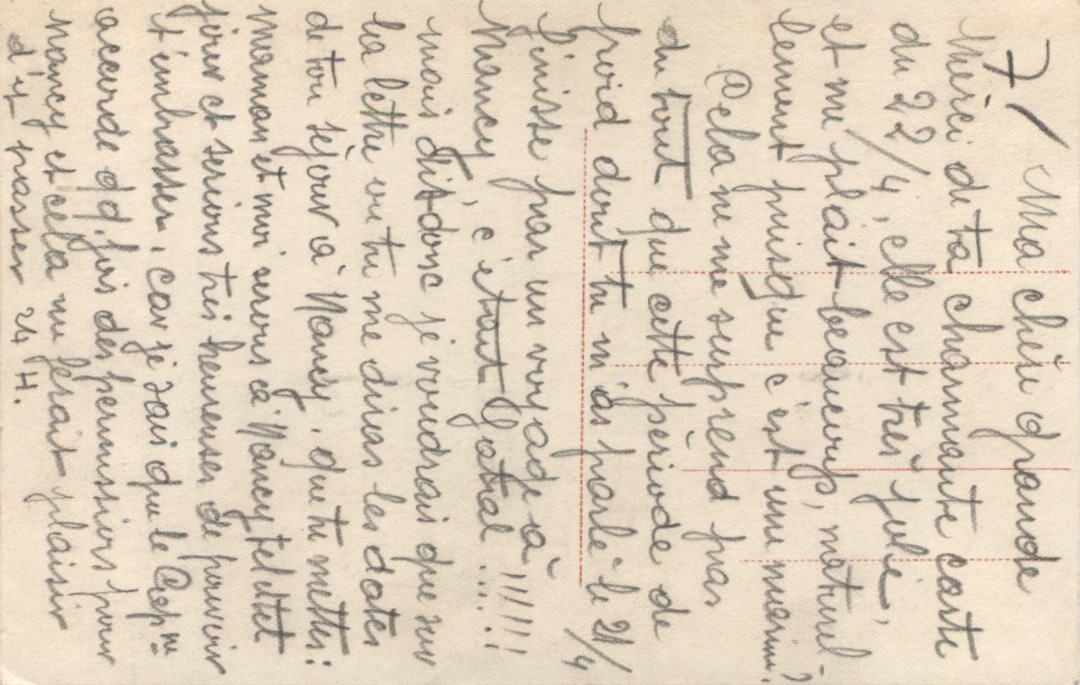 7/ Ma chère grande
Mérci de ta charmante carte
du 22/4, elle est très jolie,
et me plait beaucoup, naturel
lement puisque c'est une marine?
Cela ne me surprend pas
du tout que cette période de
froid dont tu m'as parlé le 21/4
finisse par un voyage à
Nancy, c'était fatal....!!!!!!
mais dit donc je voudrais que sur
la lettre où tu me diras les dates
de ton séjour à Nancy, que tu mettes:
maman et moi serons à Nancy tel et tel
jour et serions très heureuses de pouvoir
t'embrasser, car je sais que le Cap ne
accorde qq. fois des permissions pour
nancy et cela me férait plaisir
d'y passer 24 H.